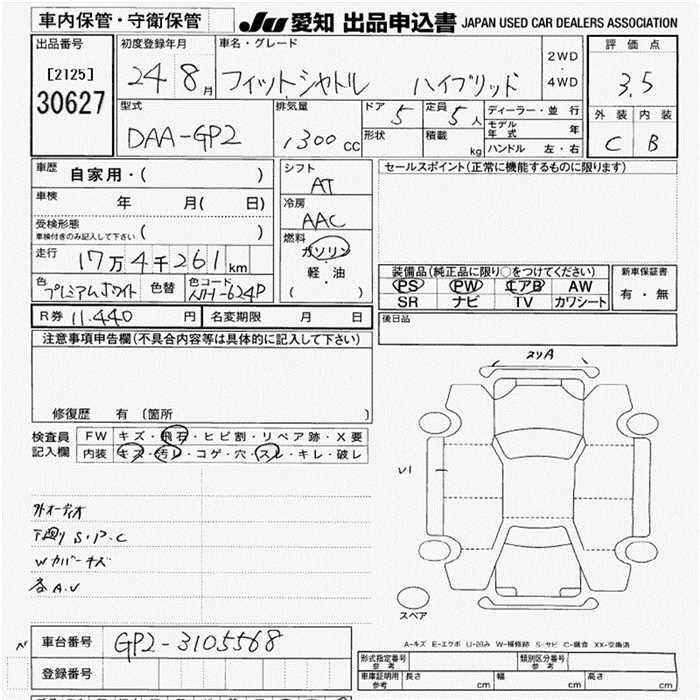 車内保管・守衛保管
JU 愛知 出品申込書 JAPAN USED CAR DEALERS ASSOCIATION
出品番号
[2125]
30627
初度登録年月
24 8月
車名・グレード
フィットシャトル ハイブリッド
2WD
・
4WD
評価点
3.5
外装 内装
C B
型式
DAA-GP2
排気量
1300cc
ドア 5
定員 5人
形状
積載 kg
ディーラー・並行
モデル年式 年
ハンドル 左・右
車歴
自家用・( )
車検
年 月( 日)
受検形態
車検付きのみ記入して下さい ( )
走行
17万4千261km
色
プレミアムホワイト
色替
色コード
NH-624P
シフト
AT
冷房
AAC
燃料
ガソリン
・
軽油
( )
セールスポイント(正常に機能するものに限ります)
装備品(純正品に限り○をつけてください)
PS PW エアB AW
SR ナビ TV カワシート
新車保証書
有・無
R券 11.440 円
名変期限 月 日
後日品
注意事項申告欄(不具合内容等は具体的に記入して下さい)
修復歴 有 〔箇所 〕
検査員記入欄
FW キズ・飛石・ヒビ割・リペア跡・X要
内装 キズ・汚レ・コゲ・穴・スレ・キレ・破レ
外オーディオ
下廻り S.P.C
Wカバーキズ
各A.U
スリA
U1
スペア
A-キズ E-エクボ U-凹み W-補修跡 S-サビ C-腐食 XX-交換済
車台番号
GP2-3105568
登録番号
形式指定番号
参考
類別区分番号
参考
車庫証明用
参考
長さ cm
幅 cm
高さ cm